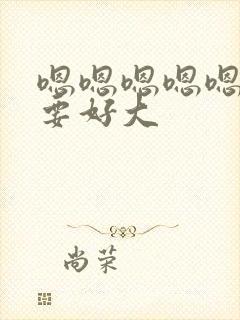 嗯嗯嗯嗯嗯
要好大
尚荣